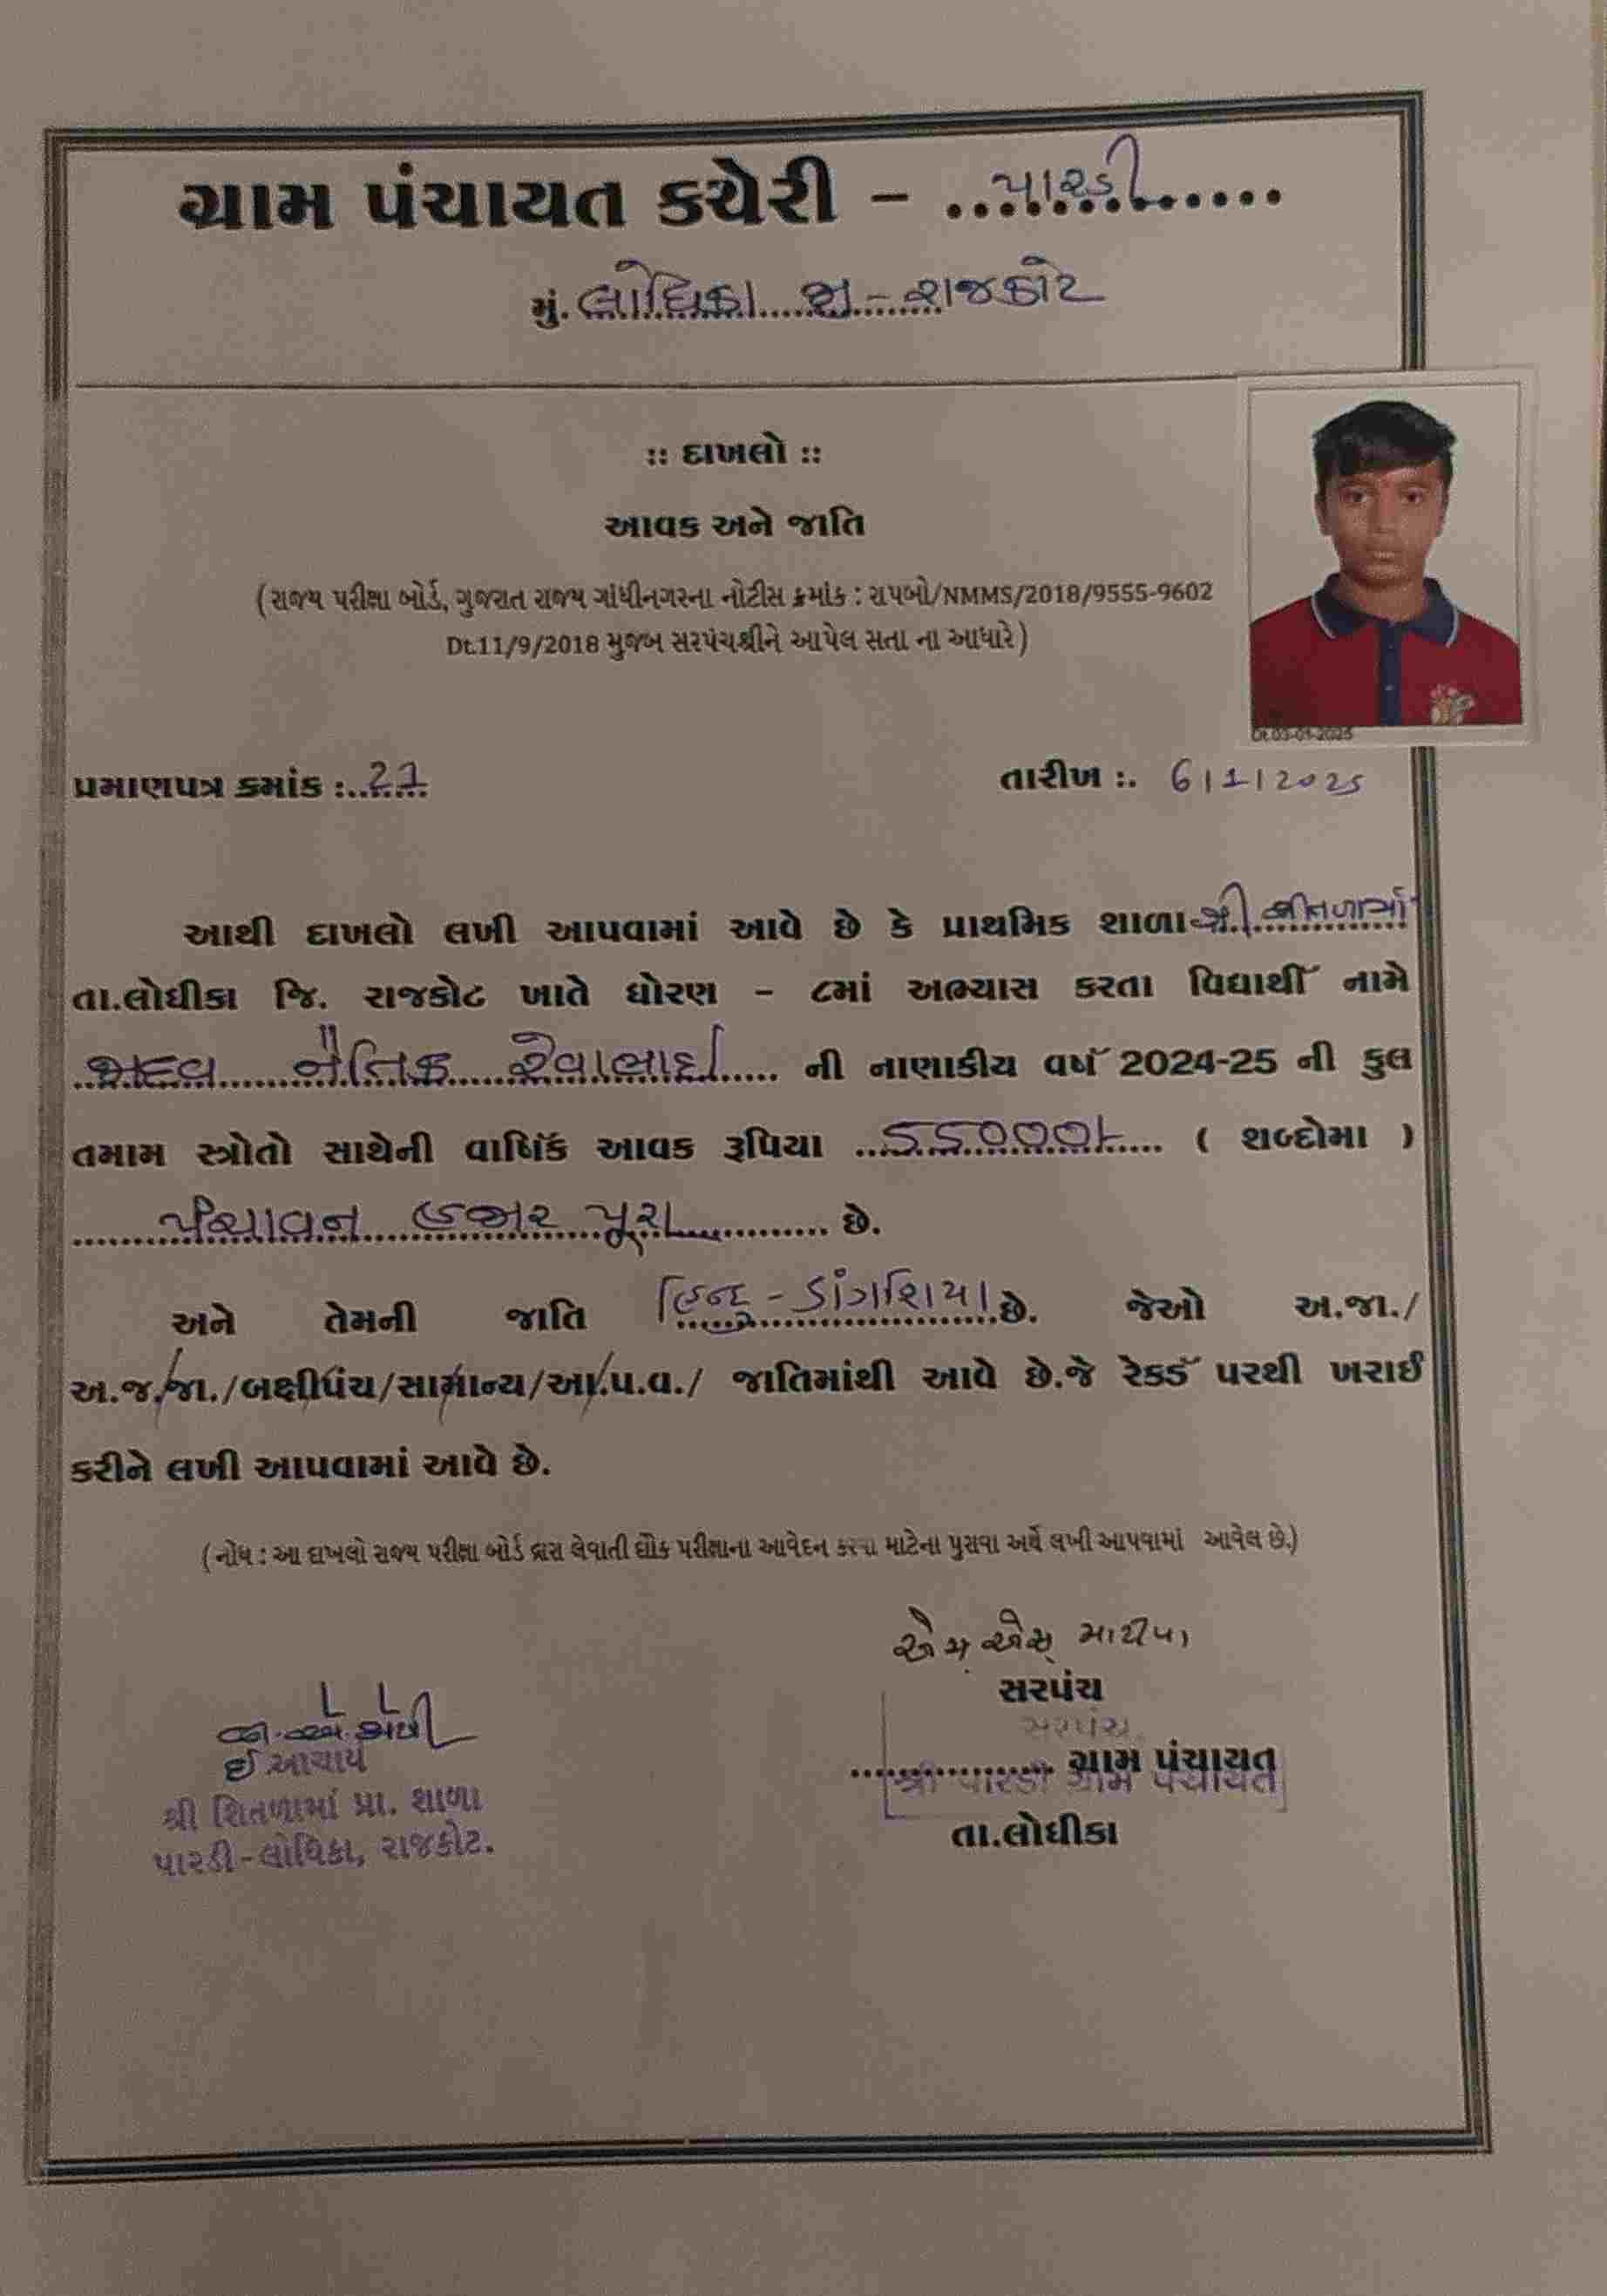 ગ્રામ પંચાયત કચેરી – પારડી
મું. લોધિકા જી - રાજકોટ
:: દાખલો ::
આવક અને જાતિ
(રાજ્ય પરીક્ષા બોર્ડ, ગુજરાત રાજ્ય ગાંધીનગરના નોટીસ ક્રમાંક : રાપબો/NMMS/2018/9555-9602
Dt.11/9/2018 મુજબ સરપંચશ્રીને આપેલ સતા ના આધારે)
Dt.03-01-2025
પ્રમાણપત્ર ક્રમાંક :..27
તારીખ :. 6/1/2025
આથી દાખલો લખી આપવામાં આવે છે કે પ્રાથમિક શાળા શ્રી શીતળામાં
તા.લોધીકા જિ. રાજકોટ ખાતે ધોરણ - ૮માં અભ્યાસ કરતા વિદ્યાર્થી નામે
નૈતિક ની નાણાકીય વર્ષ 2024-25 ની કુલ
તમામ સ્ત્રોતો સાથેની વાર્ષિક આવક રૂપિયા ૫૫૦૦૦/- ( શબ્દોમા )
પંચાવન હજાર પૂરા છે.
અને તેમની જાતિ હિન્દુ - ડાંગશિયા છે. જેઓ અ.જા./
અ.જ.જા./બક્ષીપંચ/સામાન્ય/આ.પ.વ./ જાતિમાંથી આવે છે.જે રેકર્ડ પરથી ખરાઈ
કરીને લખી આપવામાં આવે છે.
(નોંધ : આ દાખલો રાજ્ય પરીક્ષા બોર્ડ દ્વારા લેવાતી પરીક્ષાના આવેદન કરવા માટેના પુરાવા અર્થે લખી આપવામાં આવેલ છે.)
એમ એસ
સરપંચ
સરપંચ
ગ્રામ પંચાયત
શ્રી પારડી ગ્રામ પંચાયત
તા.લોધીકા
ઈ આચાર્ય
શ્રી શિતળામાં પ્રા. શાળા
પારડી-લોધિકા, રાજકોટ.